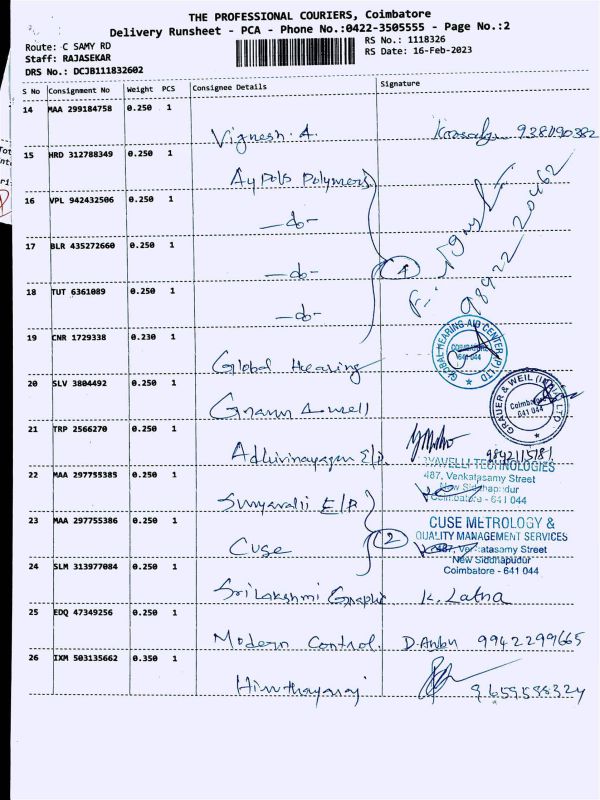 THE PROFESSIONAL COURIERS, Coimbatore
Delivery Runsheet - PCA - Phone No.:0422-3505555 - Page No.:2
Route: C SAMY RD
RS No.: 1118326
Staff: RAJASEKAR
RS Date: 16-Feb-2023
DRS No.: DCJB111832602
S No Consignment No Weight PCS Consignee Details Signature
14 MAA 299184758 0.250 1
Vignesh. A.
15 HRD 312788349 0.250 1
Aypols Polymers
16 VPL 942432506 0.250 1
-do-
17 BLR 435272660 0.250 1
-do-
4
98922 20462
18 TUT 6361089 0.250 1
-do-
19 CNR 1729338 0.230 1
Global Hearing
GLOBAL HEARING AID CENTER (P) LTD
COIMBATORE
641 044
20 SLV 3804492 0.250 1
GRAUER & WEIL (INDIA) LTD
Coimbatore
641 044
21 TRP 2566270 0.250 1
9842115781
22 MAA 297755385 0.250 1
TECHNOLOGIES
487, Venkatasamy Street
New Siddhapudur
Coimbatore - 641 044
23 MAA 297755386 0.250 1
Cuse
2
CUSE METROLOGY &
QUALITY MANAGEMENT SERVICES
487, Venkatasamy Street
New Siddhapudur
Coimbatore - 641 044
24 SLM 313977084 0.250 1
Sri Lakshmi K. Latha
25 EDQ 47349256 0.250 1
Modern Control. D. Anbu 9942299665
26 IXM 503135662 0.350 1
9659588324